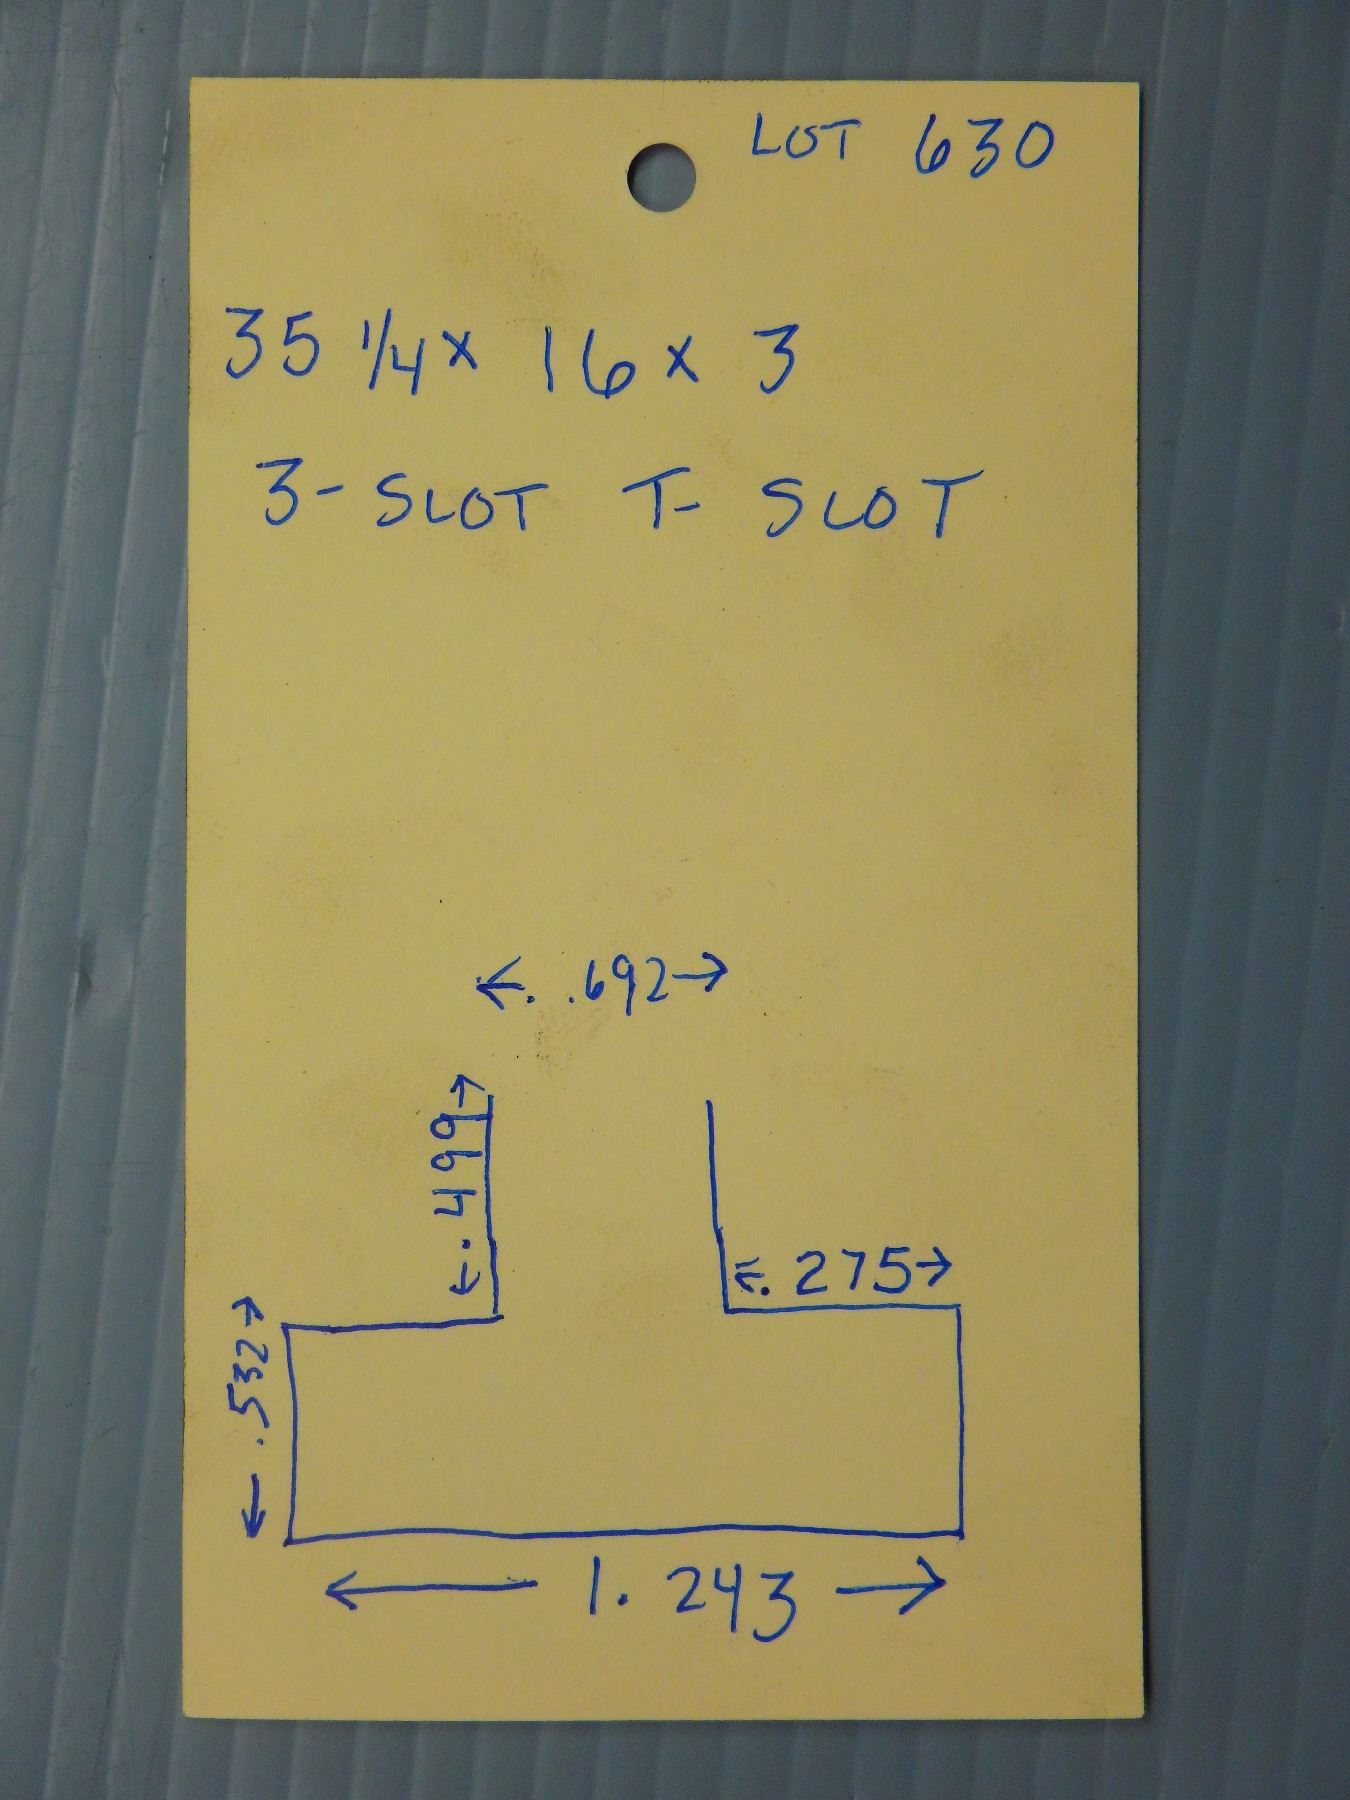 LOT 630
35 1/4 x 16 x 3
3- SLOT T- SLOT
.692
.499
.275
.532
1.243